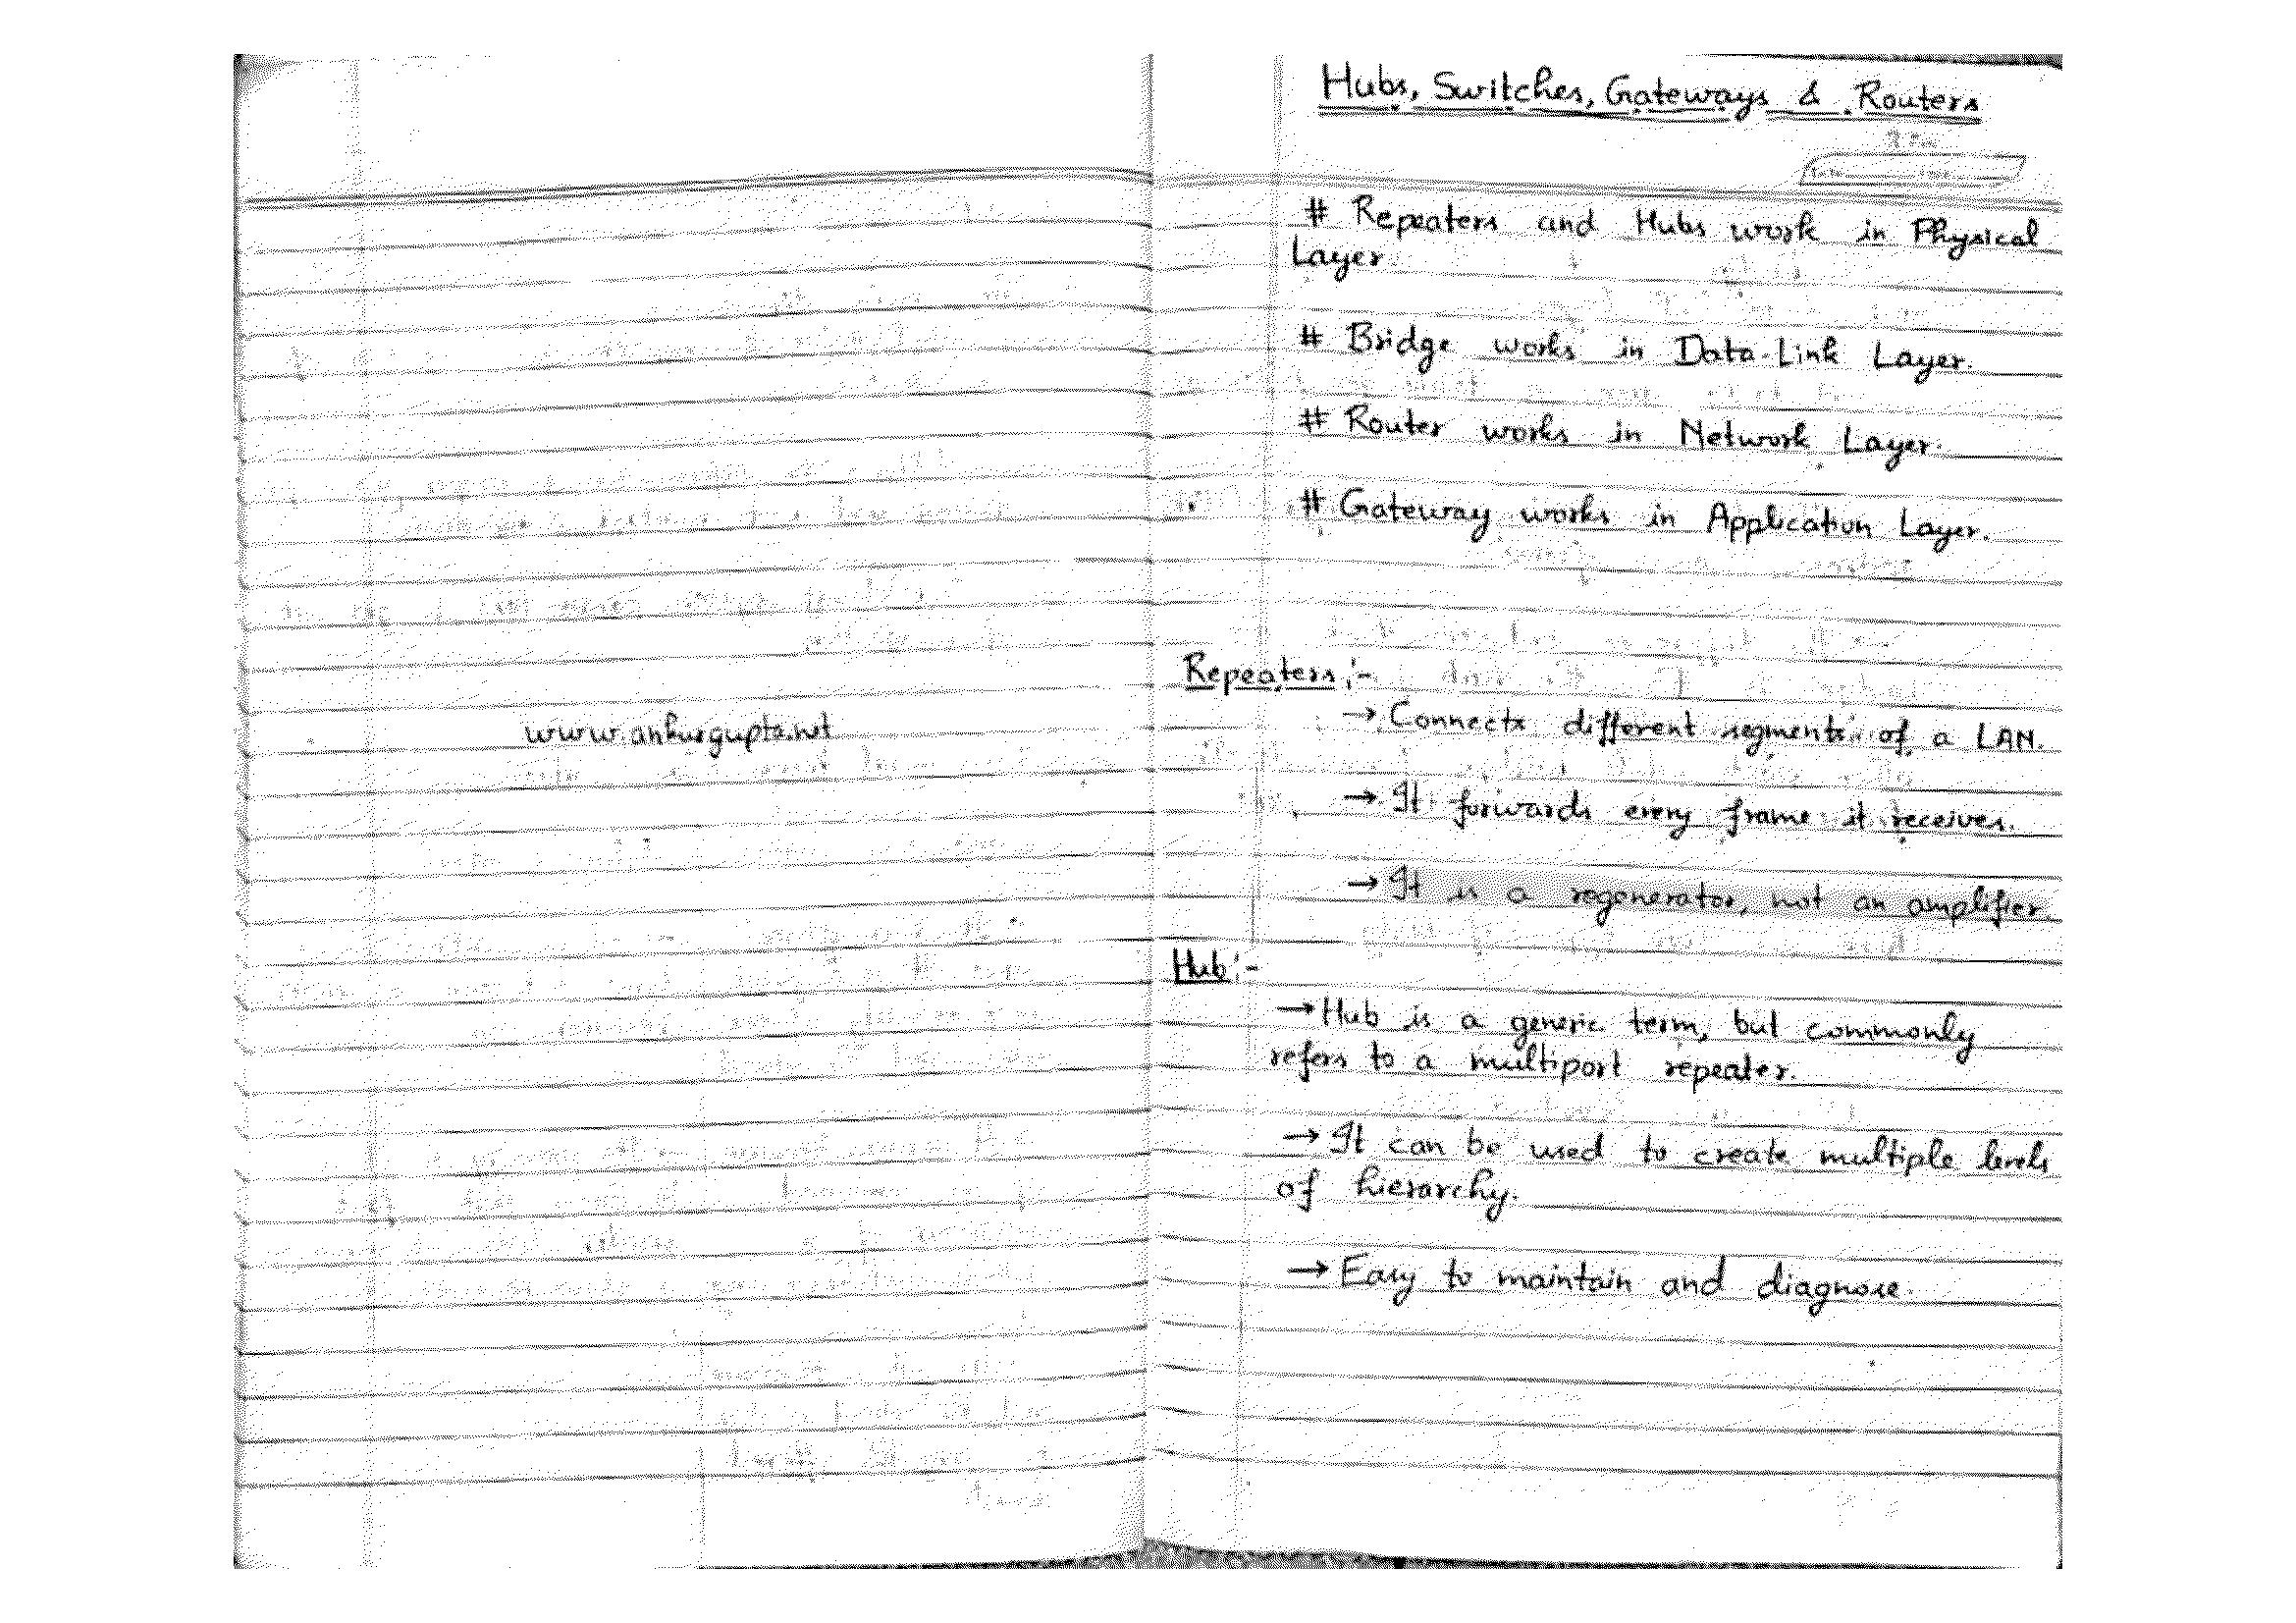 www.ankurgupta.net
Hubs, Switches, Gateways & Routers
# Repeaters and Hubs work in Physical
Layer
# Bridge works in Data-Link Layer.
# Router works in Network Layer.
# Gateway works in Application Layer.
Repeaters :-
→ Connects different segments of a LAN.
→ It forwards every frame it receives.
→ It is a regenerator, not an amplifier.
Hub :-
→ Hub is a generic term, but commonly
refers to a multiport repeater.
→ It can be used to create multiple levels
of hierarchy.
→ Easy to maintain and diagnose.